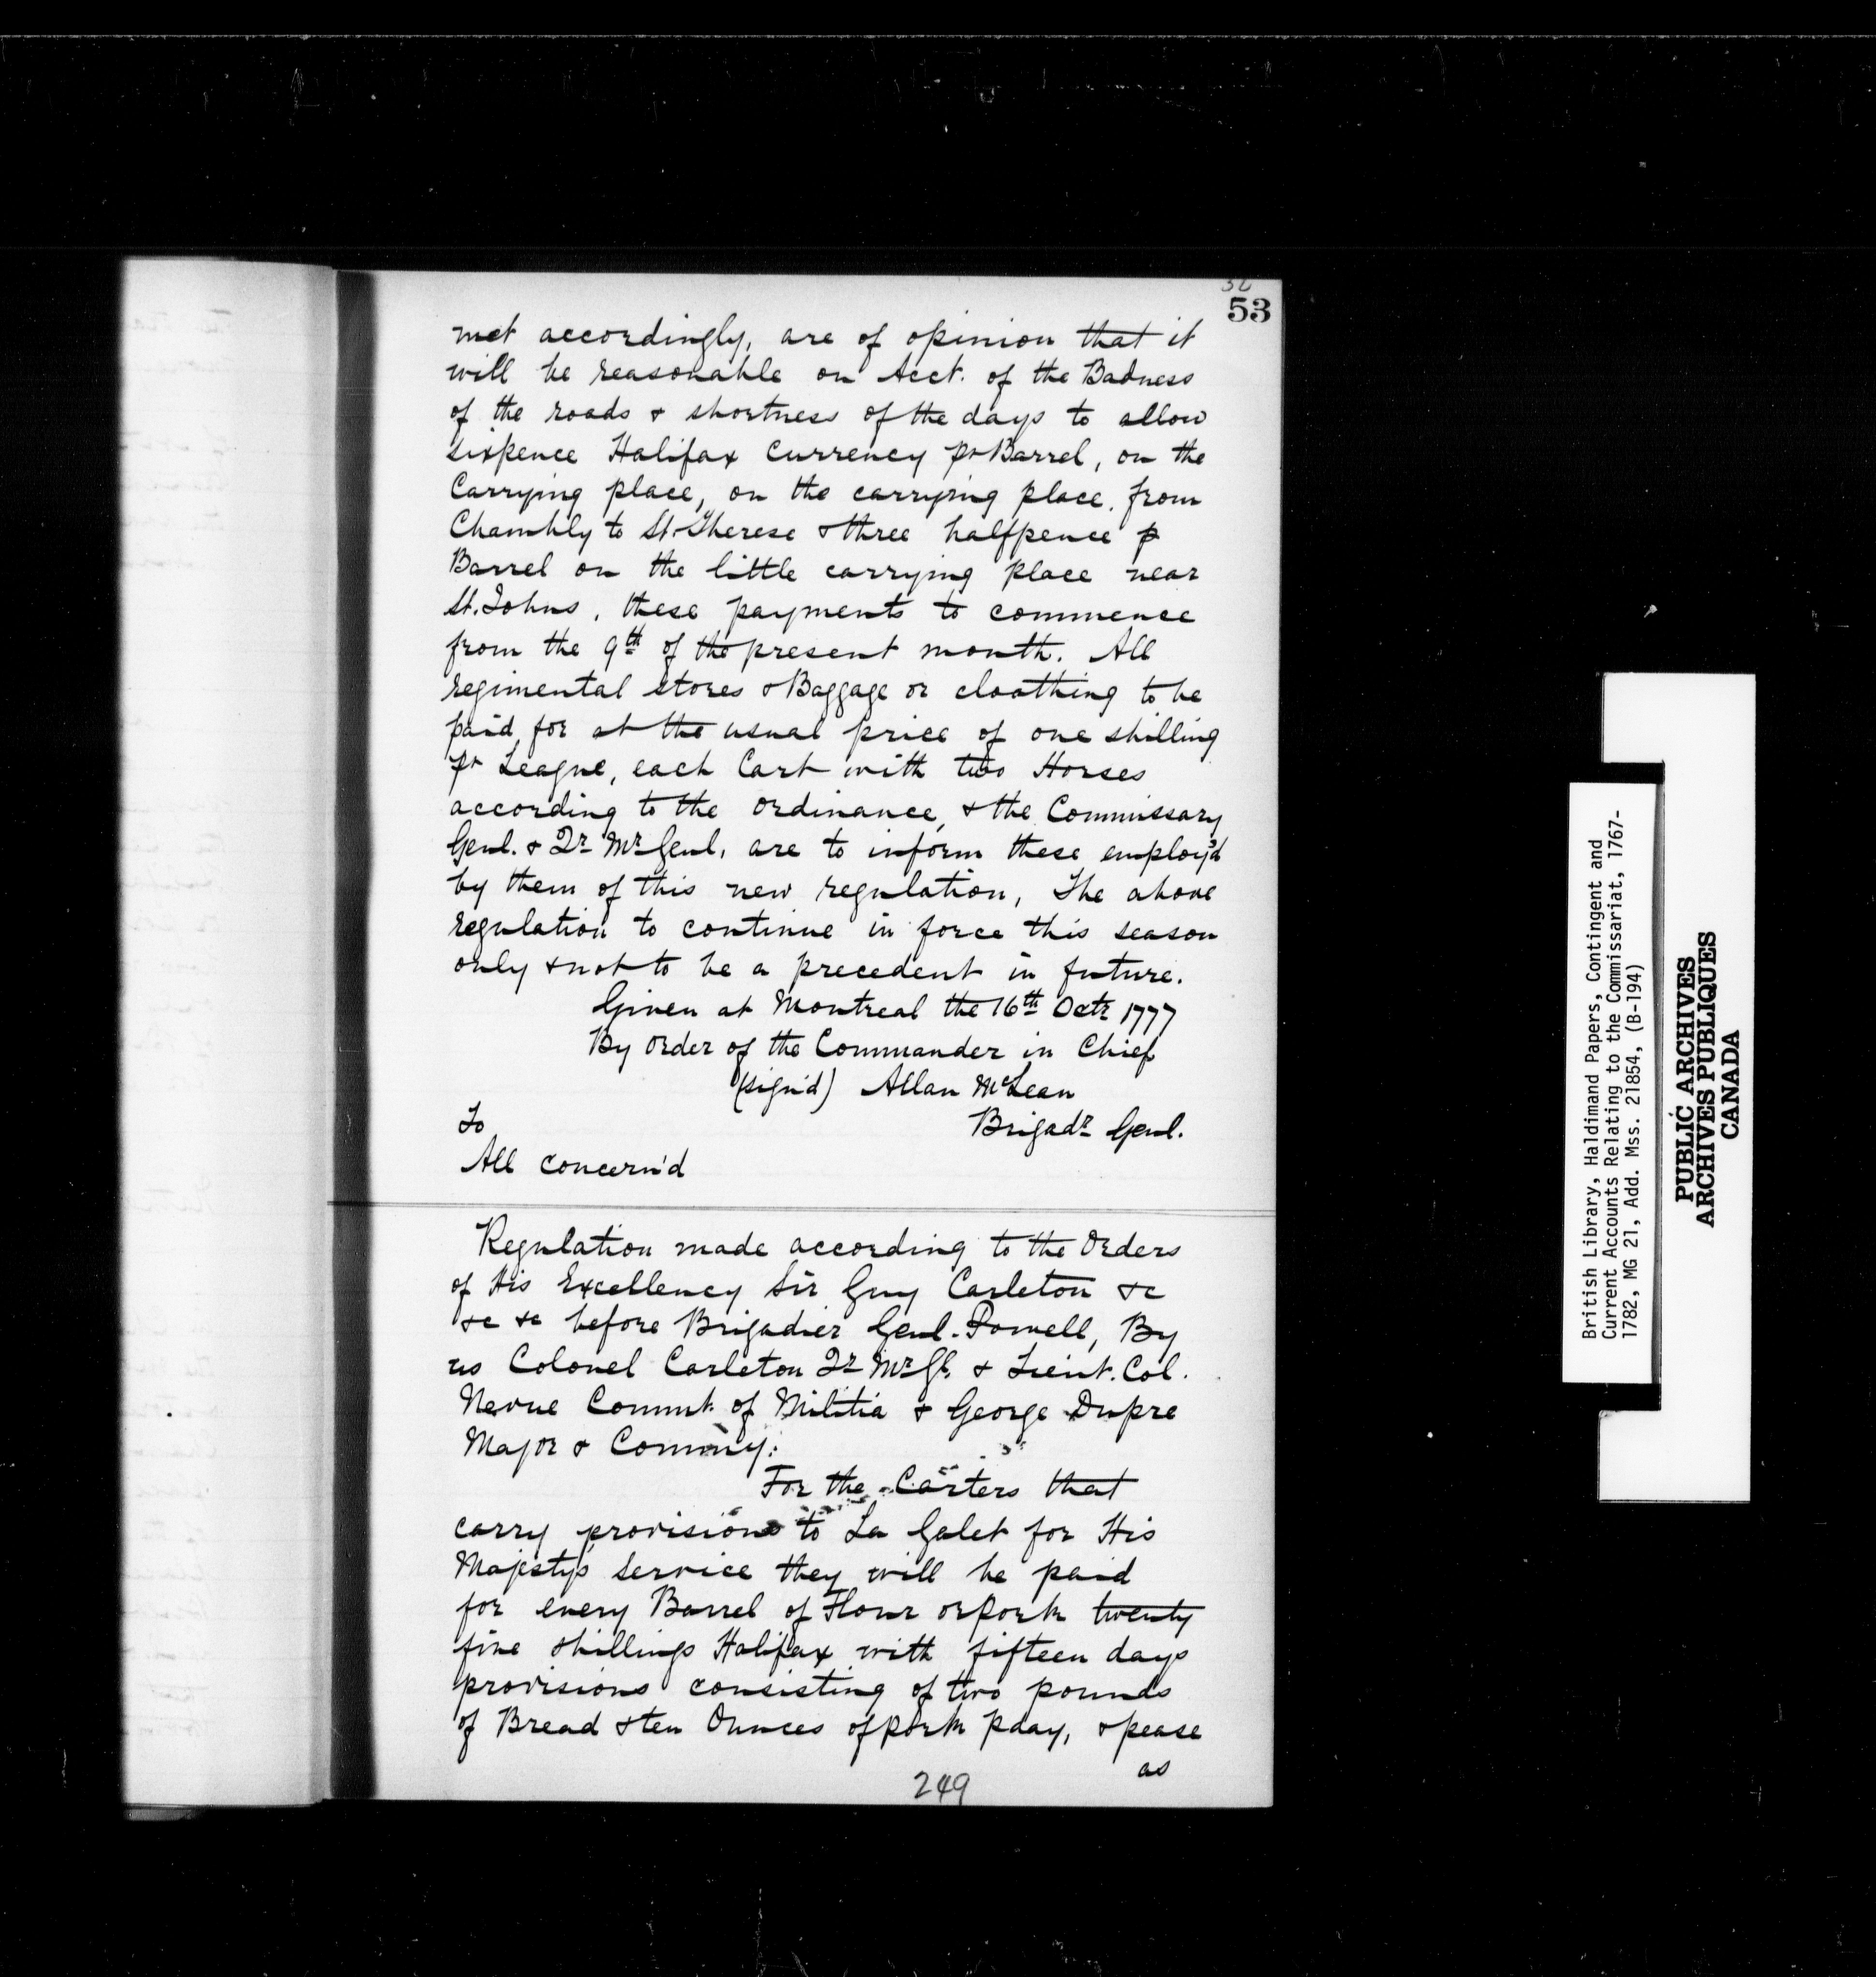 53
met accordingly, are of opinion that it
will be reasonable on Acct. of the Badness
of the roads & shortness of the days to allow
sixpence Halifax Currency pr Barrel, on the
Carrying place, on the carrying place, from
Chambly to St. Therese & three halfpence p
Barrel on the little carrying place near
St. Johns, these payments to commence
from the 9th of the present month. All
regimental stores & Baggage or cloathing to be
paid for at the usual price of one shilling
pr League, each Cart with two Horses
according to the ordinance, & the Commissary
Genl. & Qr Mr Genl. are to inform these employ'd
by them of this new regulation, The above
regulation to continue in force this season
only & not to be a precedent in future.
Given at Montreal the 16th Octr 1777
By order of the Commander in Chief
(sign'd) Allan McLean
Brigadr Genl.
To
All concern'd
Regulation made according to the Orders
of His Excellency Sir Guy Carleton &c
&c &c before Brigadier Genl. Powell, By
us Colonel Carleton Qr Mr Gl. & Lieut. Col.
Nevue Commt. of Militia & George Dupre
Major & Commy:
For the Carters that
carry provisions to La Galet for His
Majestys Service they will be paid
for every Barrel of Flour or Pork twenty
five shillings Halifax with fifteen days
provisions consisting of two pounds
of Bread & ten Ounces of pork p day, & pease
as
249
British Library, Haldimand Papers, Contingent and
Current Accounts Relating to the Commissariat, 1767-
1782, MG 21, Add. Mss. 21854, (B-194)
PUBLIC ARCHIVES
ARCHIVES PUBLIQUES
CANADA